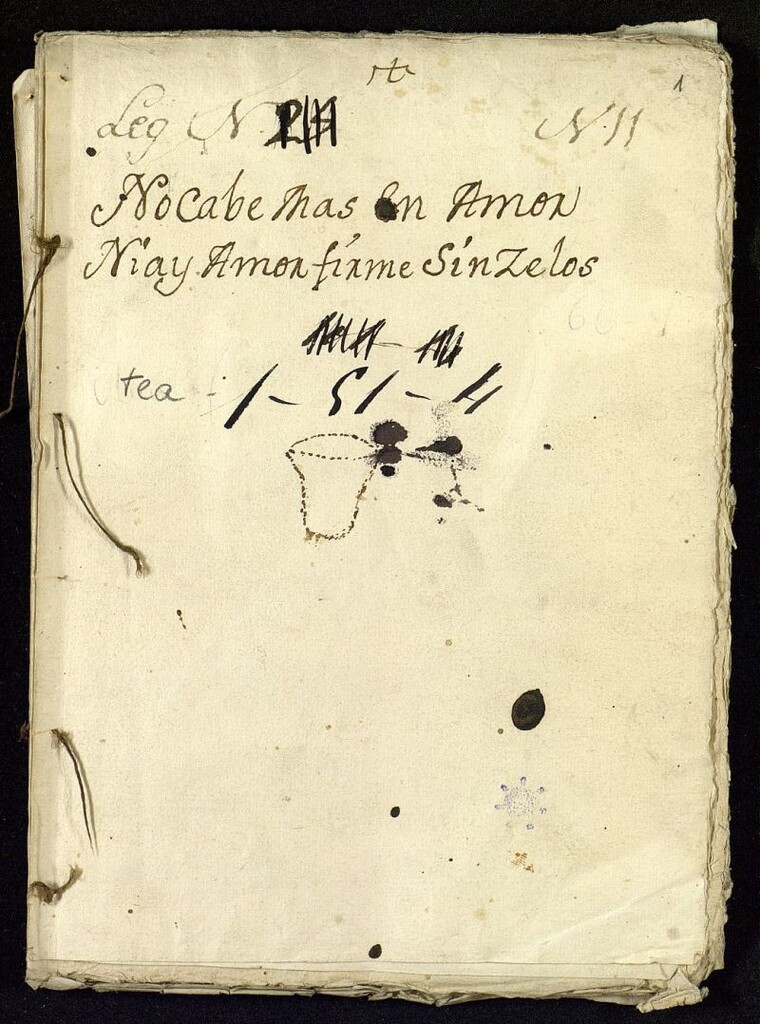 1
Leg N
N. 11
No Cabe mas en Amor
Ni ay Amor firme Sin Zelos
tea - 1 - 51 - 4